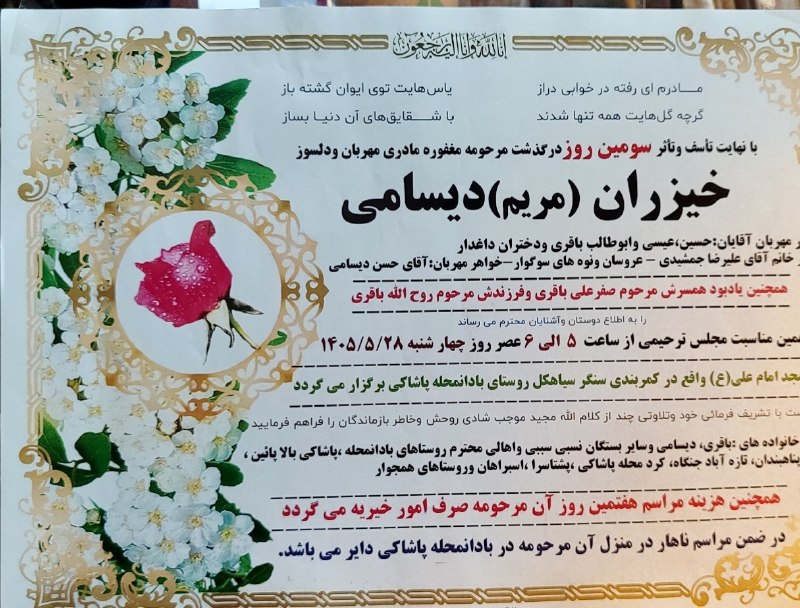 انا لله و انا الیه راجعون
مـــادرم ای رفته در خوابی دراز    یاس‌هایت توی ایوان گشته باز
گرچه گل‌هایت همه تنها شدند    با شـــقایق‌های آن دنیـا بساز
با نهایت تأسف وتأثر سومین روز درگذشت مرحومه مغفوره مادری مهربان ودلسوز
خیزران (مریم) دیسامی
مهربان آقایان:حسین،عیسی وابوطالب باقری ودختران داغدار
خانم آقای علیرضا جمشیدی – عروسان ونوه های سوگوار–خواهر مهربان:آقای حسن دیسامی
همچنین یادبود همسرش مرحوم صفرعلی باقری وفرزندش مرحوم روح الله باقری
را به اطلاع دوستان وآشنایان محترم می رساند
مناسبت مجلس ترحیمی از ساعت ۵ الی ۶ عصر روز چهار شنبه ۱۴۰۵/۵/۲۸
امام علی(ع) واقع در کمربندی سنگر سیاهکل روستای بادانمحله پاشاکی برگزار می گردد
با تشریف فرمائی خود وتلاوتی چند از کلام الله مجید موجب شادی روحش وخاطر بازماندگان را فراهم فرمایید
خانواده های :باقری، دیسامی وسایر بستگان نسبی سببی واهالی محترم روستاهای بادانمحله ،پاشاکی بالا پائین ،
تازه آباد جنگاه، کرد محله پاشاکی ،پشتاسرا ،اسبراهان وروستاهای همجوار
همچنین هزینه مراسم هفتمین روز آن مرحومه صرف امور خیریه می گردد
در ضمن مراسم ناهار در منزل آن مرحومه در بادانمحله پاشاکی دایر می باشد.